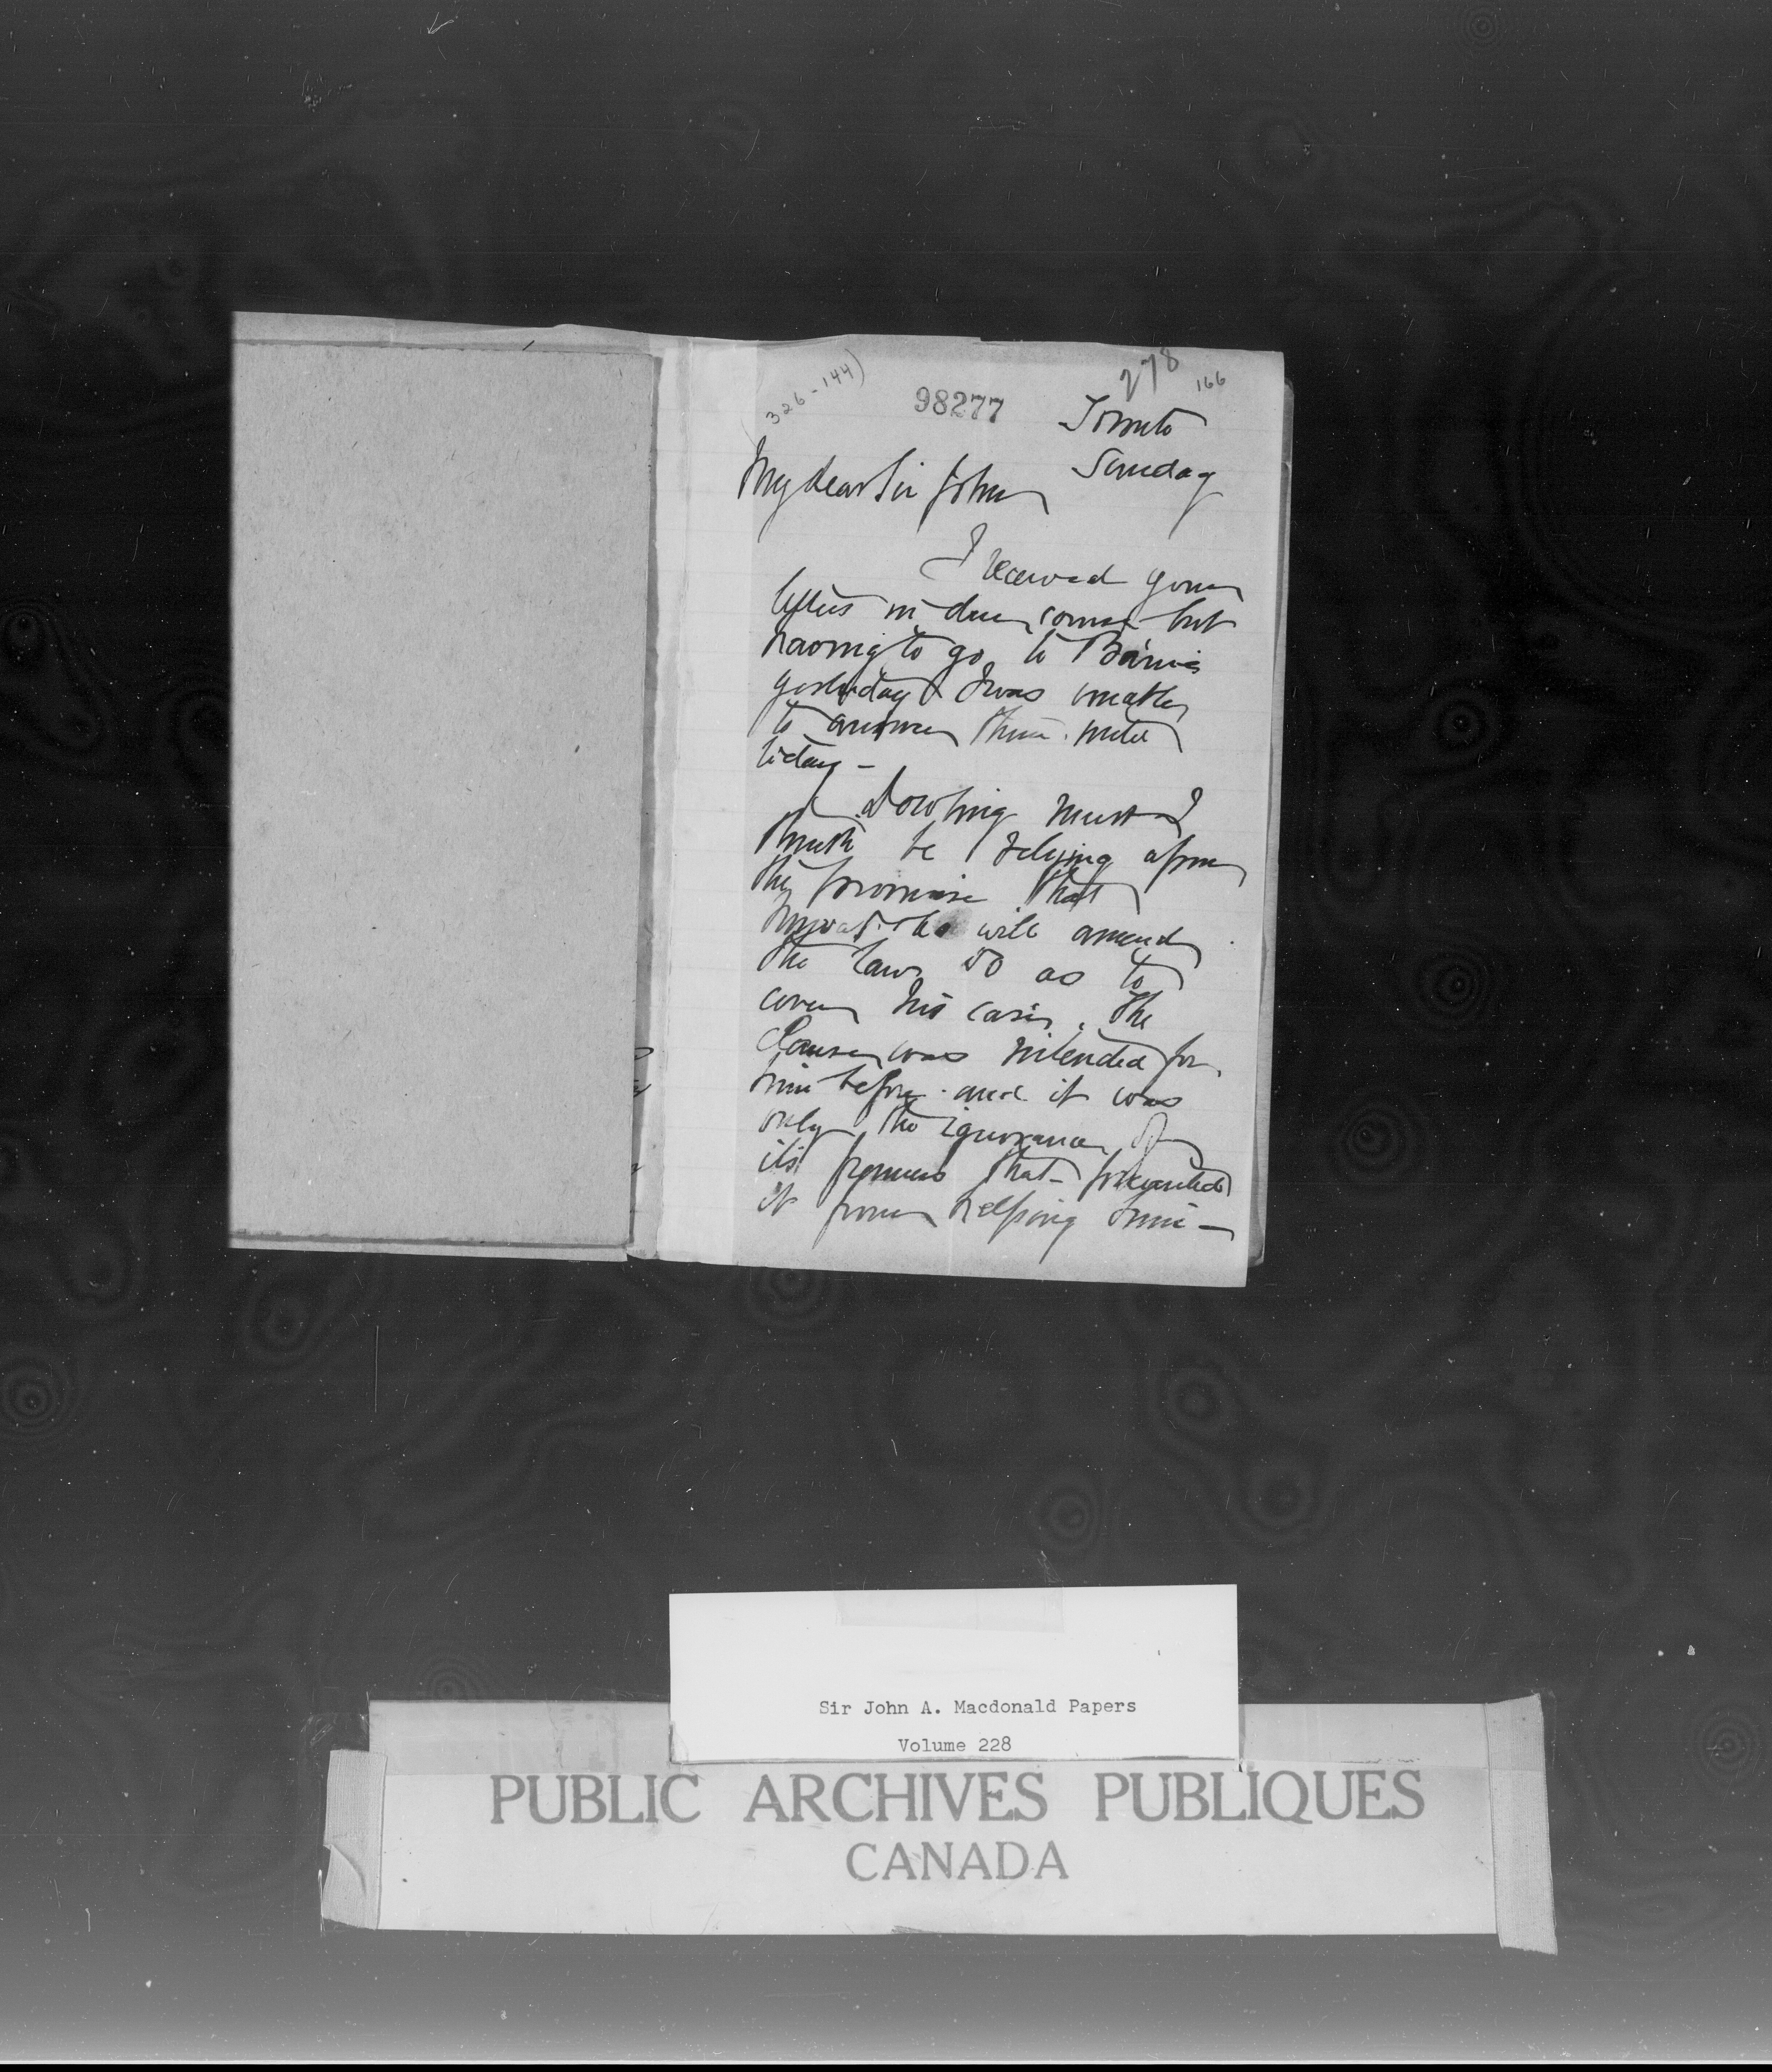 (326-144)
98277
278
166
Toronto
Sunday
My dear Sir John
I received your
letters in due course but
having to go to Barrie
yesterday I was unable
to answer them until
today -
Dowling must I
think be relying upon
the promise that
Mowat will amend
the law so as to
cover his case. The
Clause was intended for
him before and it was
only the ignorance of
its framers that prevented
it from helping him -
Sir John A. Macdonald Papers
Volume 228
PUBLIC ARCHIVES PUBLIQUES
CANADA